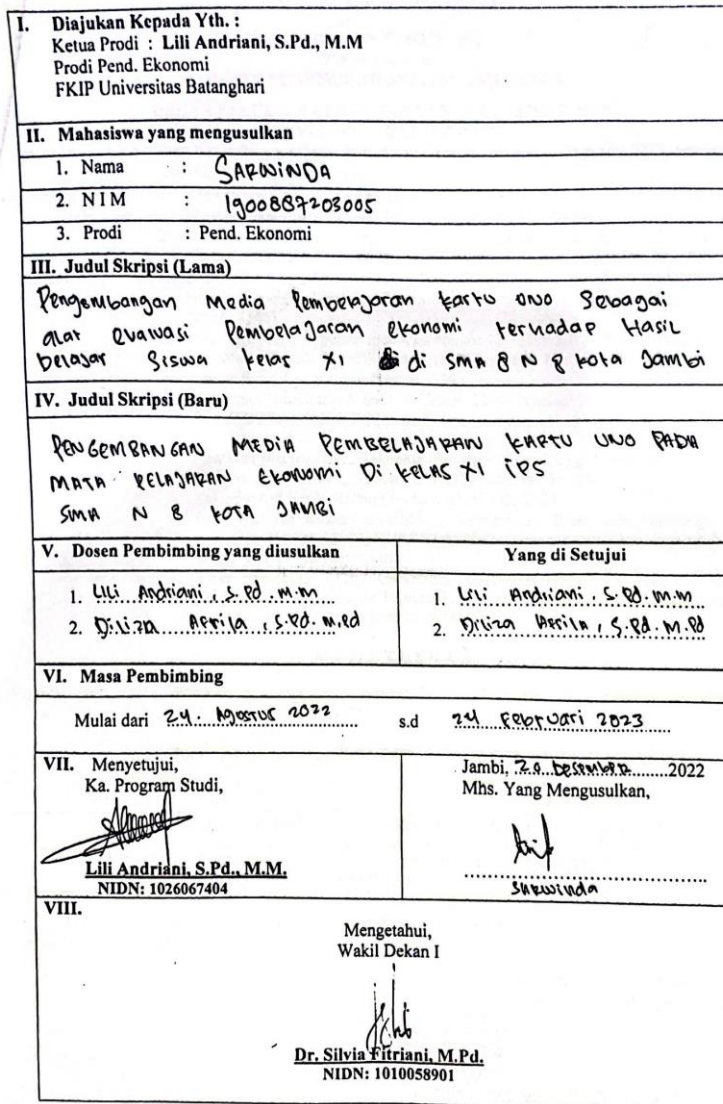 I. Diajukan Kepada Yth. :
Ketua Prodi : Lili Andriani, S.Pd., M.M
Prodi Pend. Ekonomi
FKIP Universitas Batanghari
II. Mahasiswa yang mengusulkan
1. Nama : SARWINDA
2. N I M : 1900887203005
3. Prodi : Pend. Ekonomi
III. Judul Skripsi (Lama)
Pengembangan Media Pembelajaran kartu UNO Sebagai
alat evaluasi Pembelajaran ekonomi terhadap Hasil
belajar Siswa kelas XI di SMA N 8 Kota Jambi
IV. Judul Skripsi (Baru)
PENGEMBANGAN MEDIA PEMBELAJARAN KARTU UNO PADA
MATA PELAJARAN EKONOMI DI KELAS XI IPS
SMA N 8 KOTA JAMBI
V. Dosen Pembimbing yang diusulkan
1. Lili Andriani, S.Pd. M.M
2. Diliza Afrila, S.Pd. M.Pd
Yang di Setujui
1. Lili Andriani, S.Pd. M.M
2. Diliza Afrila, S.Pd. M.Pd
VI. Masa Pembimbing
Mulai dari 24. Agustus 2022 s.d 24 Februari 2023
VII. Menyetujui,
Ka. Program Studi,
Lili Andriani, S.Pd., M.M.
NIDN: 1026067404
Jambi, 20 Desember 2022
Mhs. Yang Mengusulkan,
Sarwinda
VIII.
Mengetahui,
Wakil Dekan I
Dr. Silvia Fitriani, M.Pd.
NIDN: 1010058901